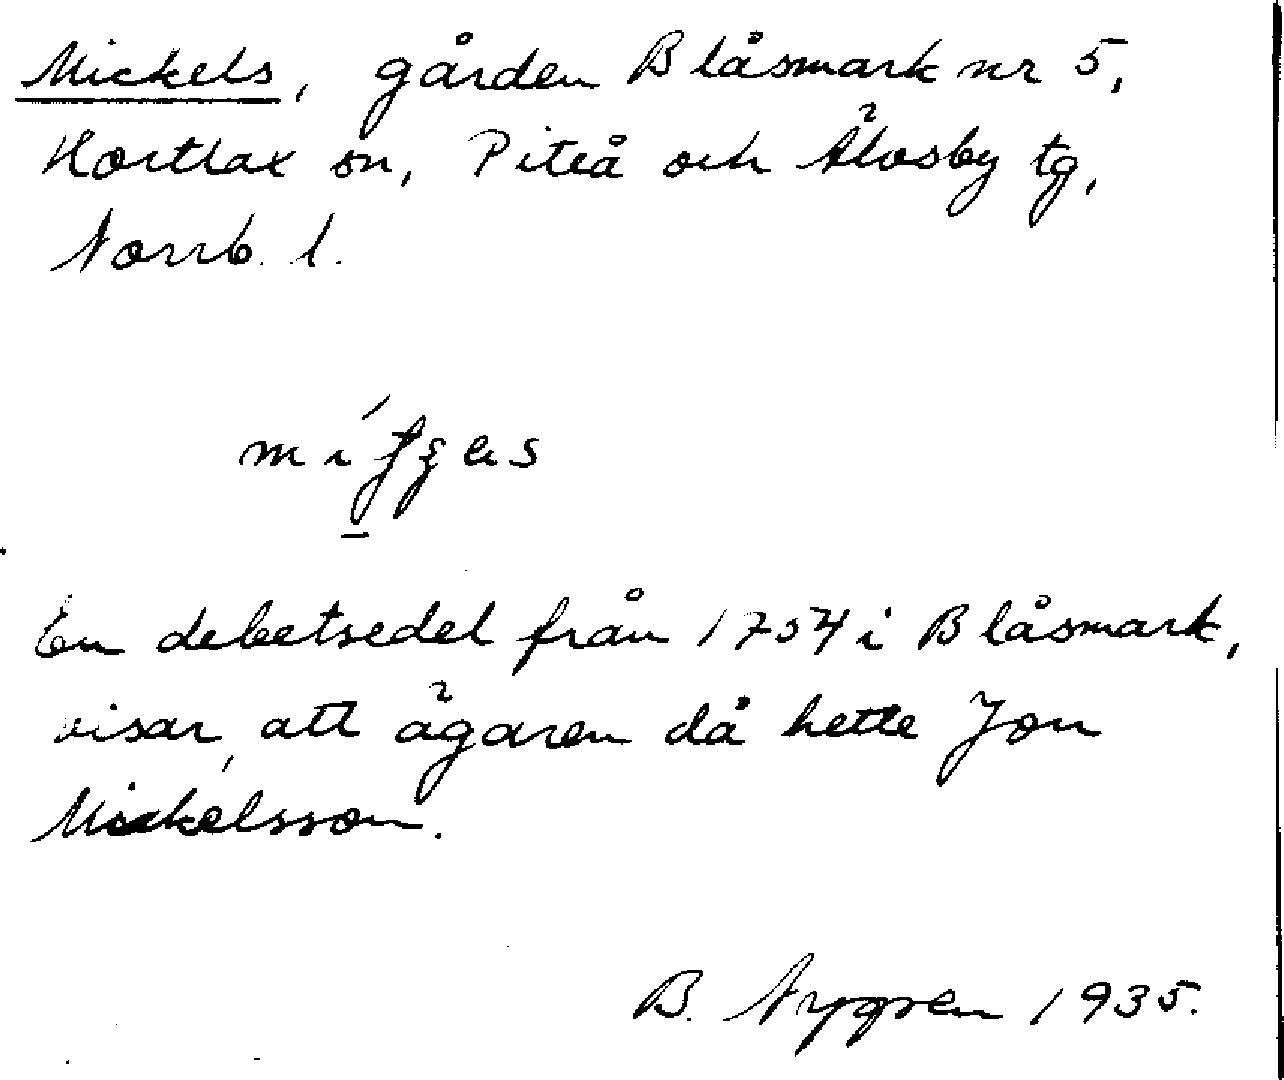 Mickels, gården Blåsmark nr 5,
Hortlax sn, Piteå och Älvsby tg,
Norrb. l.
En debetsedel från 1754 i Blåsmark,
visar, att ägaren då hette Jon
Mickelsson.
B. Nygren 1935.